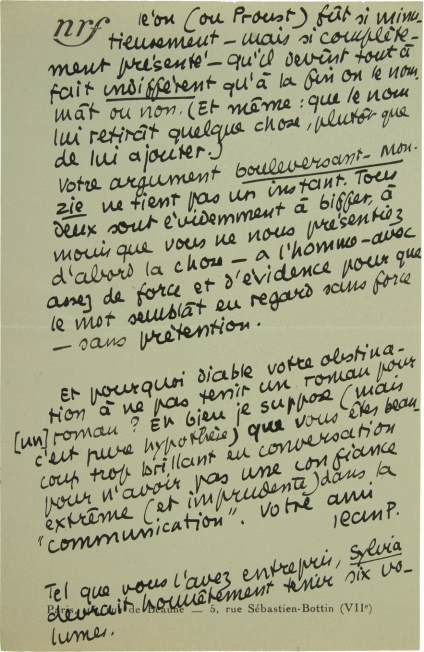 nrf
léon (ou Proust) fût si minu-
tieusement — mais si complète-
ment présenté — qu'il devînt tout à
fait indifférent qu'à la fin on le nom
mât ou non. (Et même : que le nom
lui retirât quelque chose, plutôt que
de lui ajouter.)
Votre argument bouleversant-Mon-
zie ne tient pas un instant. Tous
deux sont évidemment à biffer, à
moins que vous ne nous présentiez
d'abord la chose — à l'homme — avec
assez de force et d'évidence pour que
le mot semblât en regard sans force
— sans prétention.
Et pourquoi diable votre obstina-
tion à ne pas tenir un roman pour
[un] roman ? Eh bien je suppose (mais
c'est pure hypothèse) que vous êtes beau-
coup trop brillant en conversation
pour n'avoir pas une confiance
extrême (et imprudente) dans la
"communication". Votre ami
Jean P.
Tel que vous l'avez entrepris, Sylvia
Paris, de Beaune — 5, rue Sébastien-Bottin (VIIe)
devrait honnêtement tenir six vo-
lumes.